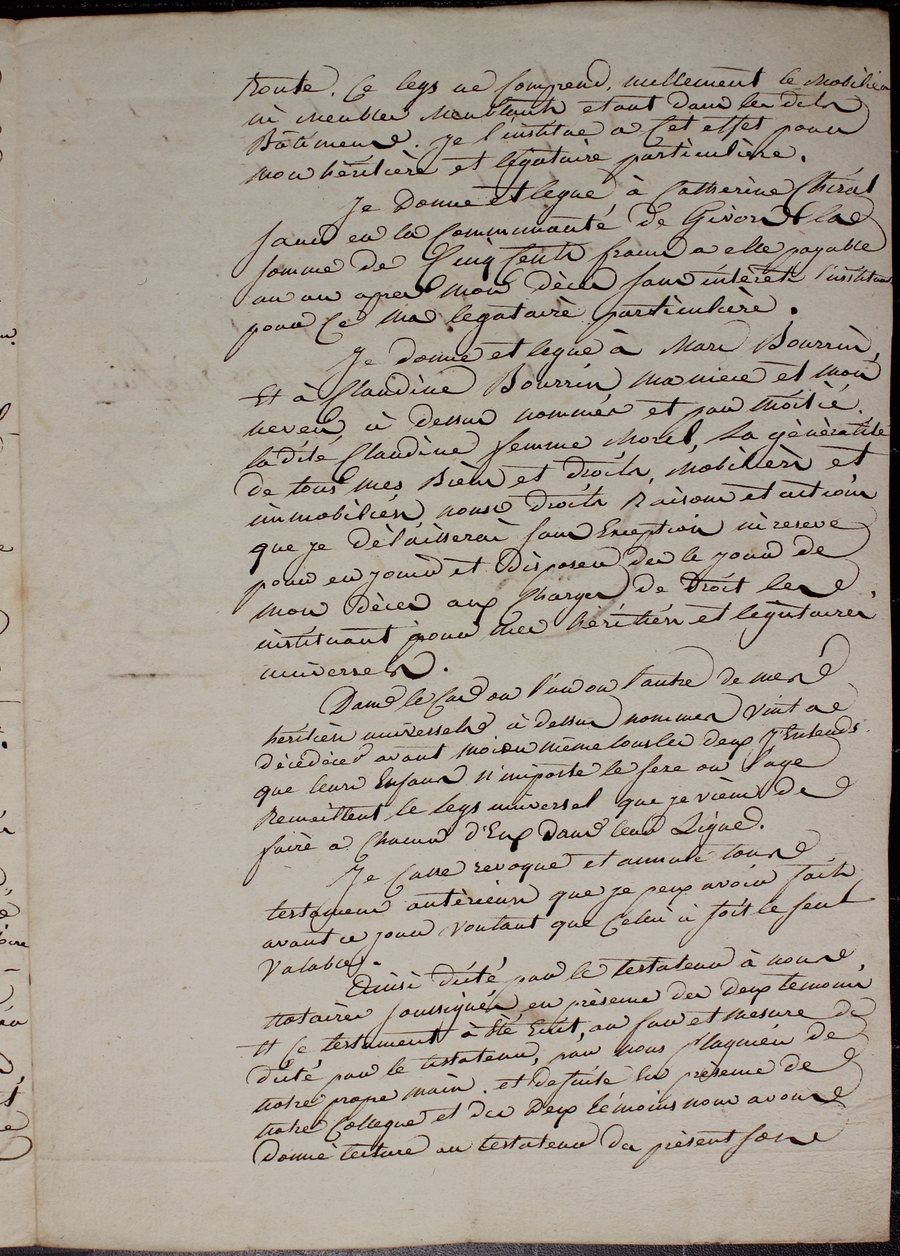 route. Ce legs ne comprend nullement le mobilier
ni meubles meublants etant dans les dits
Bâtimens. Je l'institue a cet effet pour
mon héritière et légataire particulière.
Je donne et legue à Catherine Chirat
en la communauté de Givors la
somme de Cinq Cents francs a elle payable
un an apres mon décès sans intérêts l'instituant
pour ce ma legataire particulière.
Je donne et legue à Marc Bourrin,
Et à Claudine Bourrin ma niece et mon
neveu à dessus nommés et par moitié.
la dite Claudine femme Morel, La généralité
de tous mes Biens et droits, Mobiliers et
immobiliers, noms droits Raisons et actions
que je délaisserai sans Exception ni reserve
pour en jouir et Disposer dès le jour de
mon décès aux Charges de Droit les
instituant pour mes héritiers et légataires
universels.
Dans le Cas ou l'un ou l'autre de mes
héritiers universels à dessus nommes vint a
décéder avant moi ou même tous les deux J'Entends
que leurs Enfans n'importe le sexe ou l'age
Recueillent le legs universel que je viens de
faire a Chacun d'Eux Dans leur Ligne.
Je Casse revoque et annule tous
testamens antérieurs que je peux avoir faits
avant ce jour voulant que Celui ci soit le seul
Valable.
Ainsi dicté par le testateur à nous
Notaires soussignés, en présence des deux temoins
Et Ce testament à été Ecrit, au fur et mesure de
dicté par le testateur, par nous de
notre propre main. et de suite En présence de
notre Collegue et des Deux témoins nous avons
donné lecture au testateur du présent son